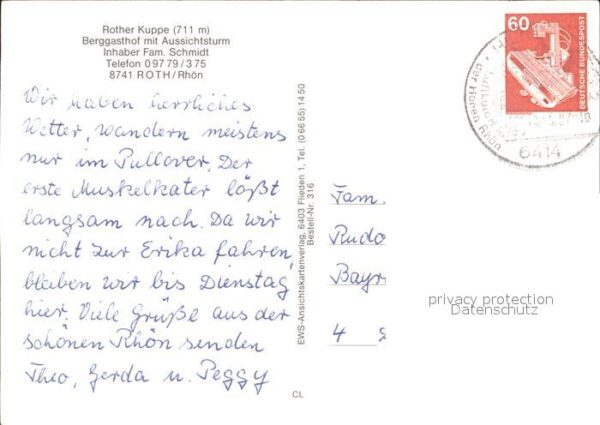 Rother Kuppe (711 m)
Berggasthof mit Aussichtsturm
Inhaber Fam. Schmidt
Telefon 0 97 79 / 3 75
8741 ROTH/Rhön
Wir haben herrliches
Wetter, wandern meistens
nur im Pullover. Der
erste Muskelkater läßt
langsam nach. Da wir
nicht zur Erika fahren,
bleiben wir bis Dienstag
hier. Viele Grüße aus der
schönen Rhön senden
Theo, Gerda u. Peggy
CL
EWS-Ansichtskartenverlag, 6403 Flieden 1, Tel. (0 66 55) 14 50
Bestell-Nr. 316
60
DEUTSCHE BUNDESPOST
der Hohen Rhön
6414
Fam.
Rudo
Bayr
4
privacy protection
Datenschutz